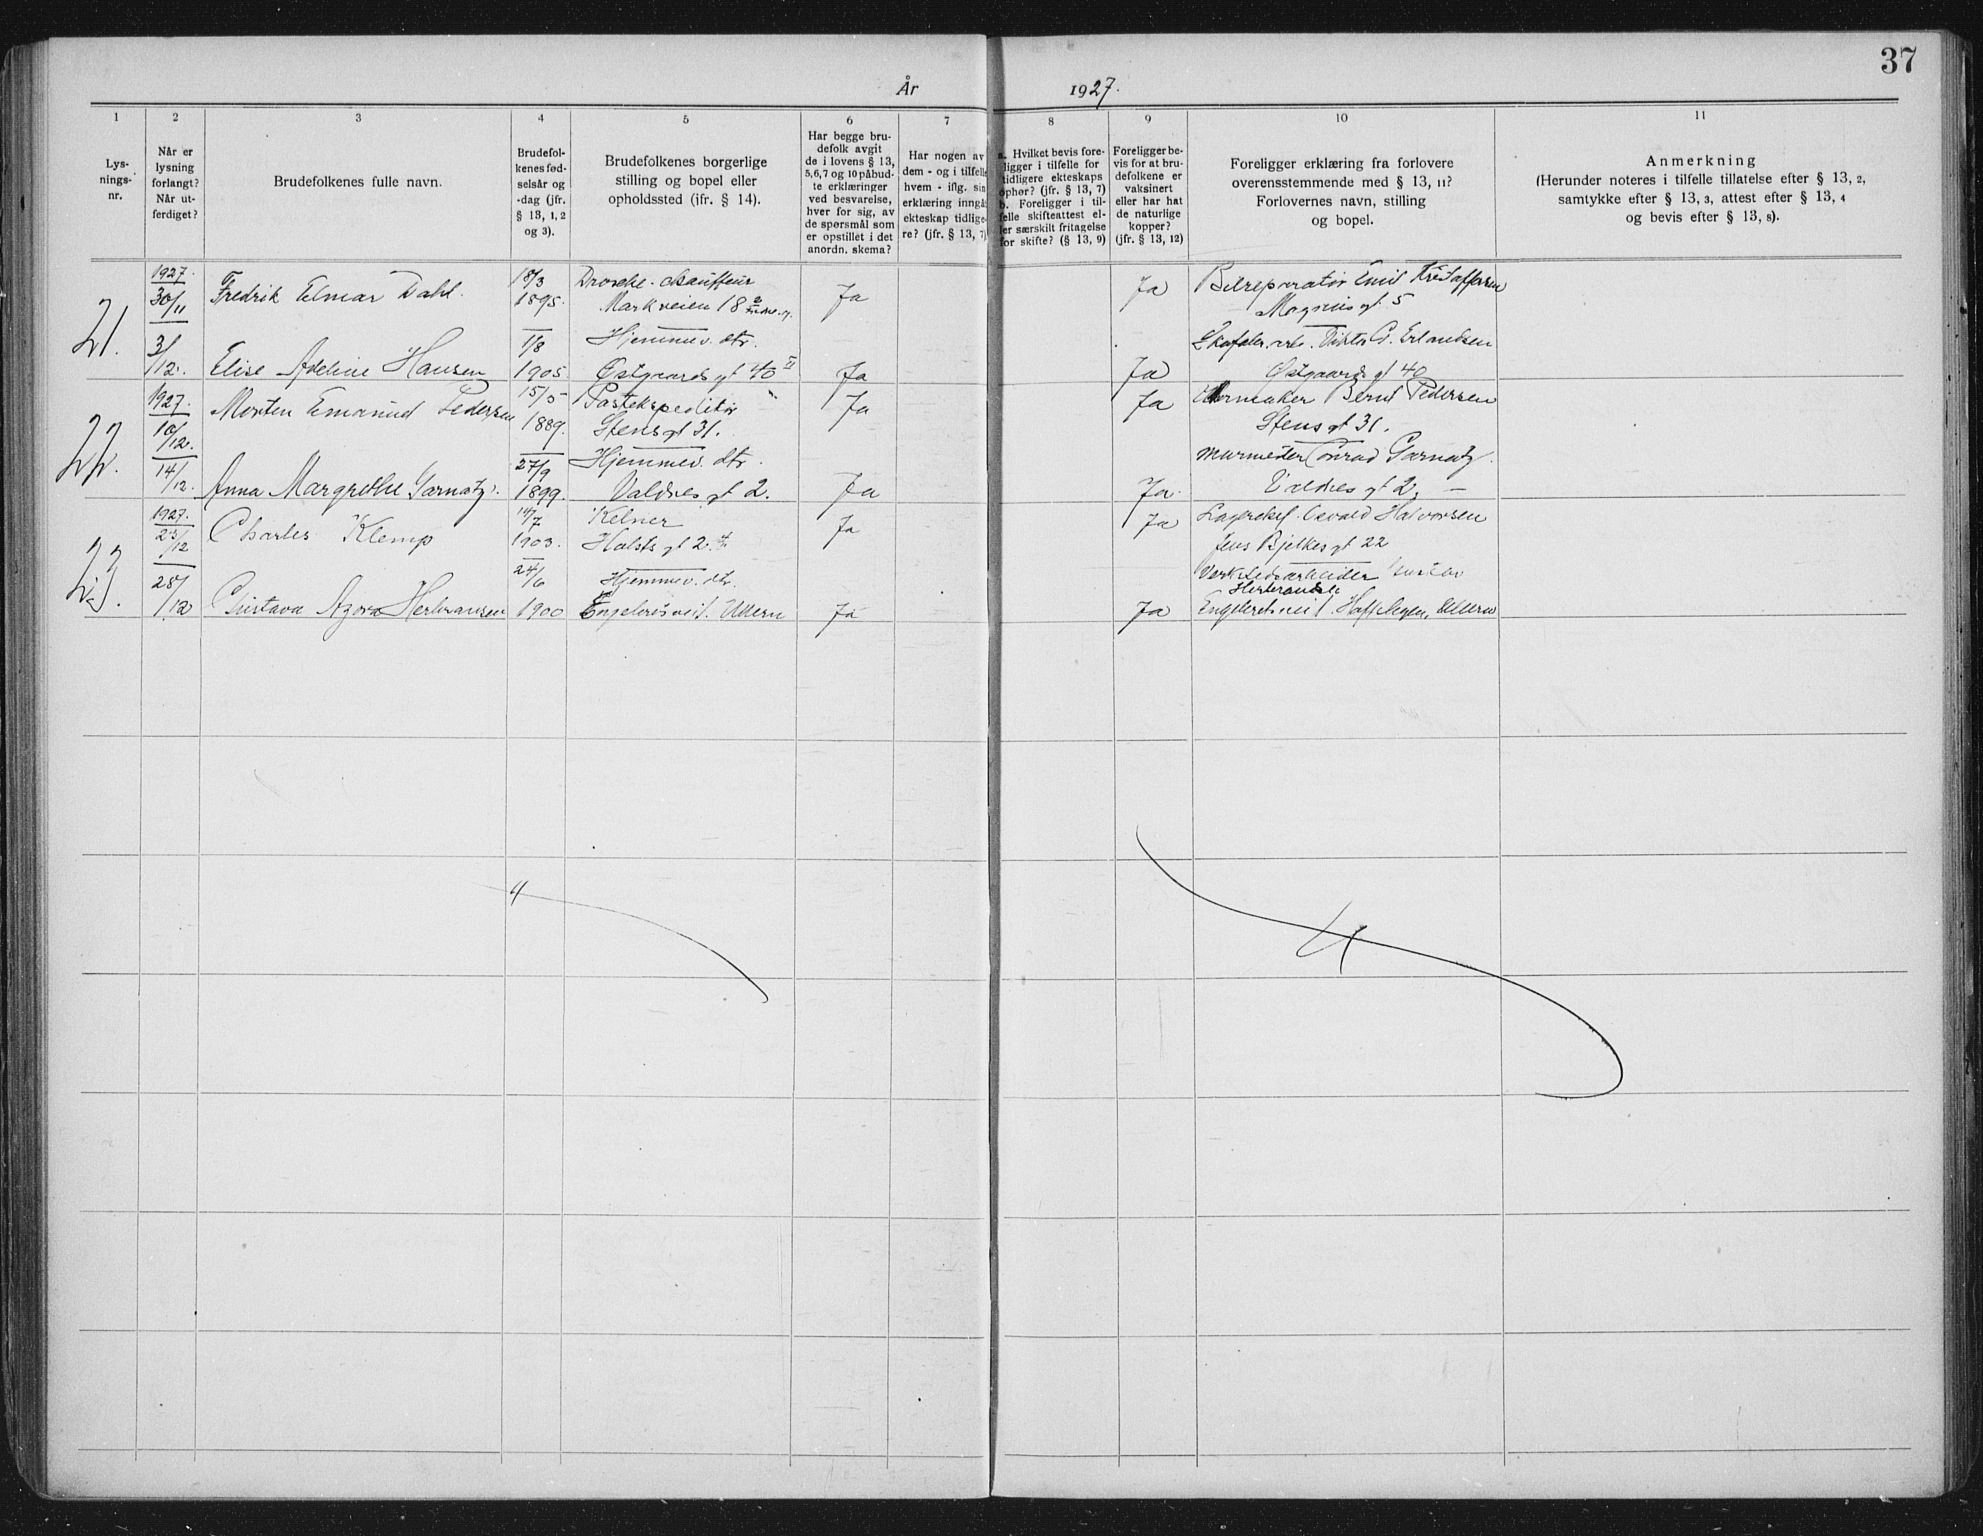 37
År 1927.
1 2 3 4 5 6 7 8 9 10 11
Lys-
nings-
nr.
Når er
lysning
forlangt?
Når ut-
ferdiget?
Brudefolkenes fulle navn.
Brudefol-
kenes fød-
selsår og
-dag (jfr.
§ 13, 1, 2
og 3).
Brudefolkenes borgerlige
stilling og bopel eller
opholdssted (jfr. § 14).
Har begge bru-
defolk avgit
de i lovens § 13,
5,6,7 og 10 påbud-
te erklæringer
ved besvarelse,
hver for sig, av
de spørsmål som
er opstillet i det
anordn. skema?
Har nogen av
dem - og i tilfelle
hvem - iflg. sin
erklæring inngå
ekteskap tidlige-
re? (jfr. § 13, 7)
a. Hvilket bevis fore-
ligger i tilfelle for
tidligere ekteskaps
ophør? (jfr. § 13, 7)
b. Foreligger i til-
felle skifteattest el-
ler særskilt fritagelse
for skifte? (§ 13, 9)
Foreligger be-
vis for at bru-
defolkene er
vaksinert
eller har hat
de naturlige
kopper?
(jfr. § 13, 12)
Foreligger erklæring fra forlovere
overensstemmende med § 13, 11?
Forlovernes navn, stilling
og bopel.
Anmerkning
(Herunder noteres i tilfelle tillatelse efter § 13, 2,
samtykke efter § 13, 3, attest efter § 13, 4
og bevis efter § 13, 8).
21.
1927.
30/11
3/12.
Fredrik Elmar Dahl.
18/3
1895.
Droschechauffeur
Markveien 18
Ja
Ja
Bilreparatør Emil Kristoffersen
Magnus gt 5
Elise Adeline Hansen
1/8
1905
Hjemmev. dtr.
Østgaards gt 40 II
Ja
Ja
Viktor C. Erlandsen
Østgaards gt 40
22.
1927.
10/12.
14/12.
Morten Emanuel Pedersen
15/5
1889.
Postekspeditør
Stens gt 31.
Ja
Ja
Urmaker Bernt Pedersen
Stens gt 31.
Anna Margrethe Garnatz.
27/9
1899.
Hjemmev. dtr.
Valdres gt 2.
Ja
Ja.
Murmester Conrad Garnatz.
Valdres gt 2. —
23.
1927.
23/12
28/12
Charles Klemp
14/7
1903.
Kelner
Holsts gt 2.
Ja
Ja
Lagereksp. Osvald Halvorsen
Jens Bjelkes gt 22
Gustava Azora Herbransen
24/6
1900
Hjemmev. dtr.
Engelets vei 1. Ullern
Ja
Ja
Verkstedsarbeider Gustav
Engelets vei 1. Ullern
4
4